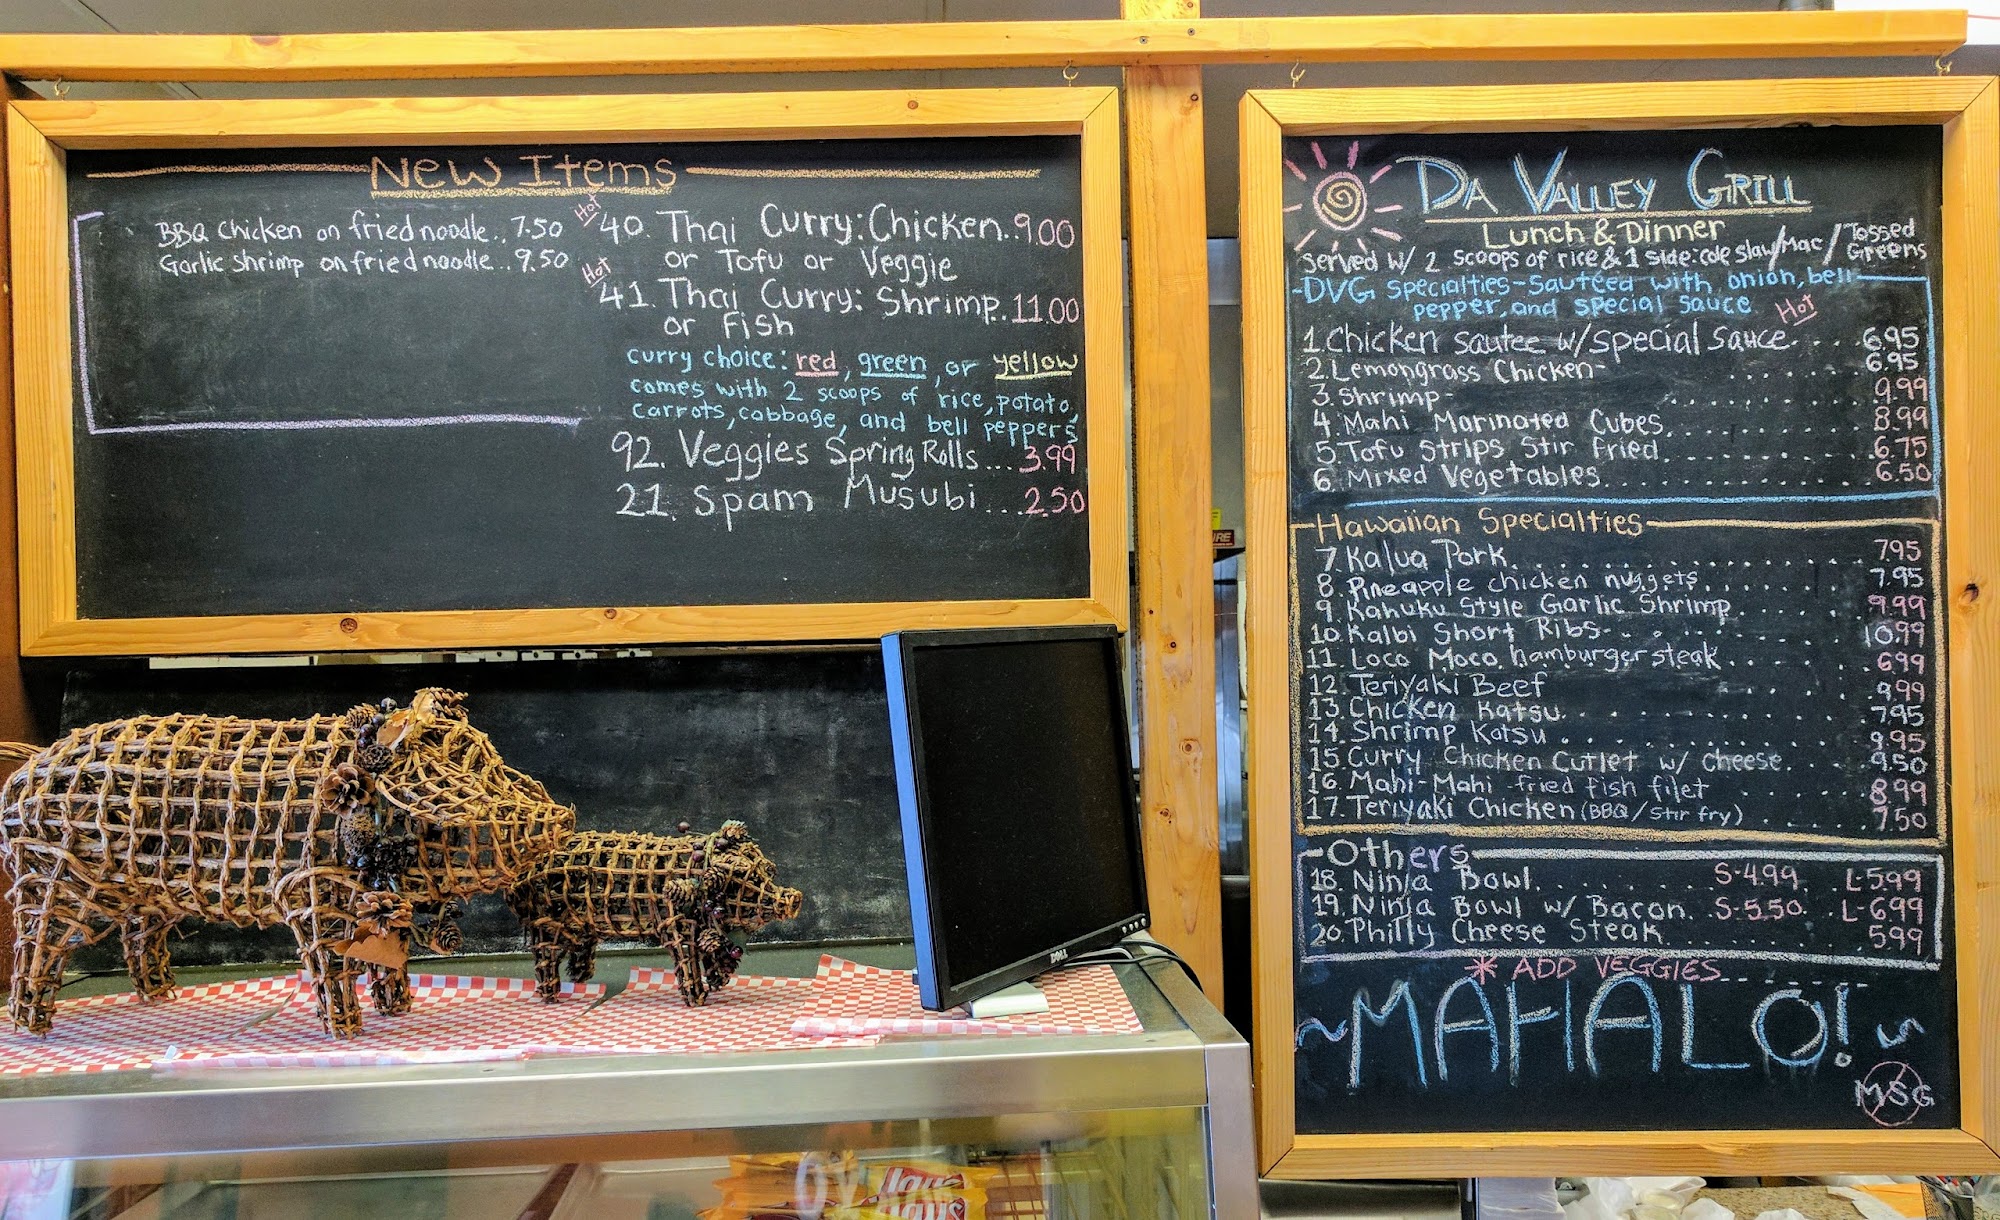 New Items
BBQ Chicken on fried noodle.. 7.50
Garlic Shrimp on fried noodle.. 9.50
Hot
40. Thai Curry: Chicken.. 9.00
or Tofu or Veggie
Hot
41. Thai Curry: Shrimp.. 11.00
or Fish
curry choice: red, green, or yellow
comes with 2 scoops of rice, potato,
carrots, cabbage, and bell peppers
92. Veggies Spring Rolls... 3.99
21. Spam Musubi... 2.50
DELL
Da Valley Grill
Lunch & Dinner
Served w/ 2 scoops of rice & 1 side: cole slaw/Mac/Tossed Greens
DVG Specialties - Sautéed with onion, bell
pepper, and special sauce
Hot
1. Chicken sautee w/special sauce.... 6.95
2. Lemongrass Chicken- ........ 6.95
3. Shrimp- ........ 9.99
4. Mahi Marinated Cubes........ 8.99
5. Tofu Strips Stir Fried........ 6.75
6. Mixed Vegetables........ 6.50
Hawaiian Specialties
7. Kalua Pork........ 7.95
8. Pineapple chicken nuggets........ 7.95
9. Kahuku Style Garlic Shrimp........ 9.99
10. Kalbi Short Ribs-........ 10.99
11. Loco Moco. hamburger steak........ 6.99
12. Teriyaki Beef........ 9.99
13. Chicken Katsu........ 7.95
14. Shrimp Katsu........ 9.95
15. Curry Chicken Cutlet w/ cheese.... 9.50
16. Mahi-Mahi -fried fish filet........ 8.99
17. Teriyaki Chicken (BBQ/Stir fry)..... 7.50
Others
18. Ninja Bowl........ S-4.99. L-5.99
19. Ninja Bowl w/ Bacon.. S-5.50. .L-6.99
20. Philly Cheese Steak........ 5.99
* ADD VEGGIES
~MAHALO!~
MSG
Lay's